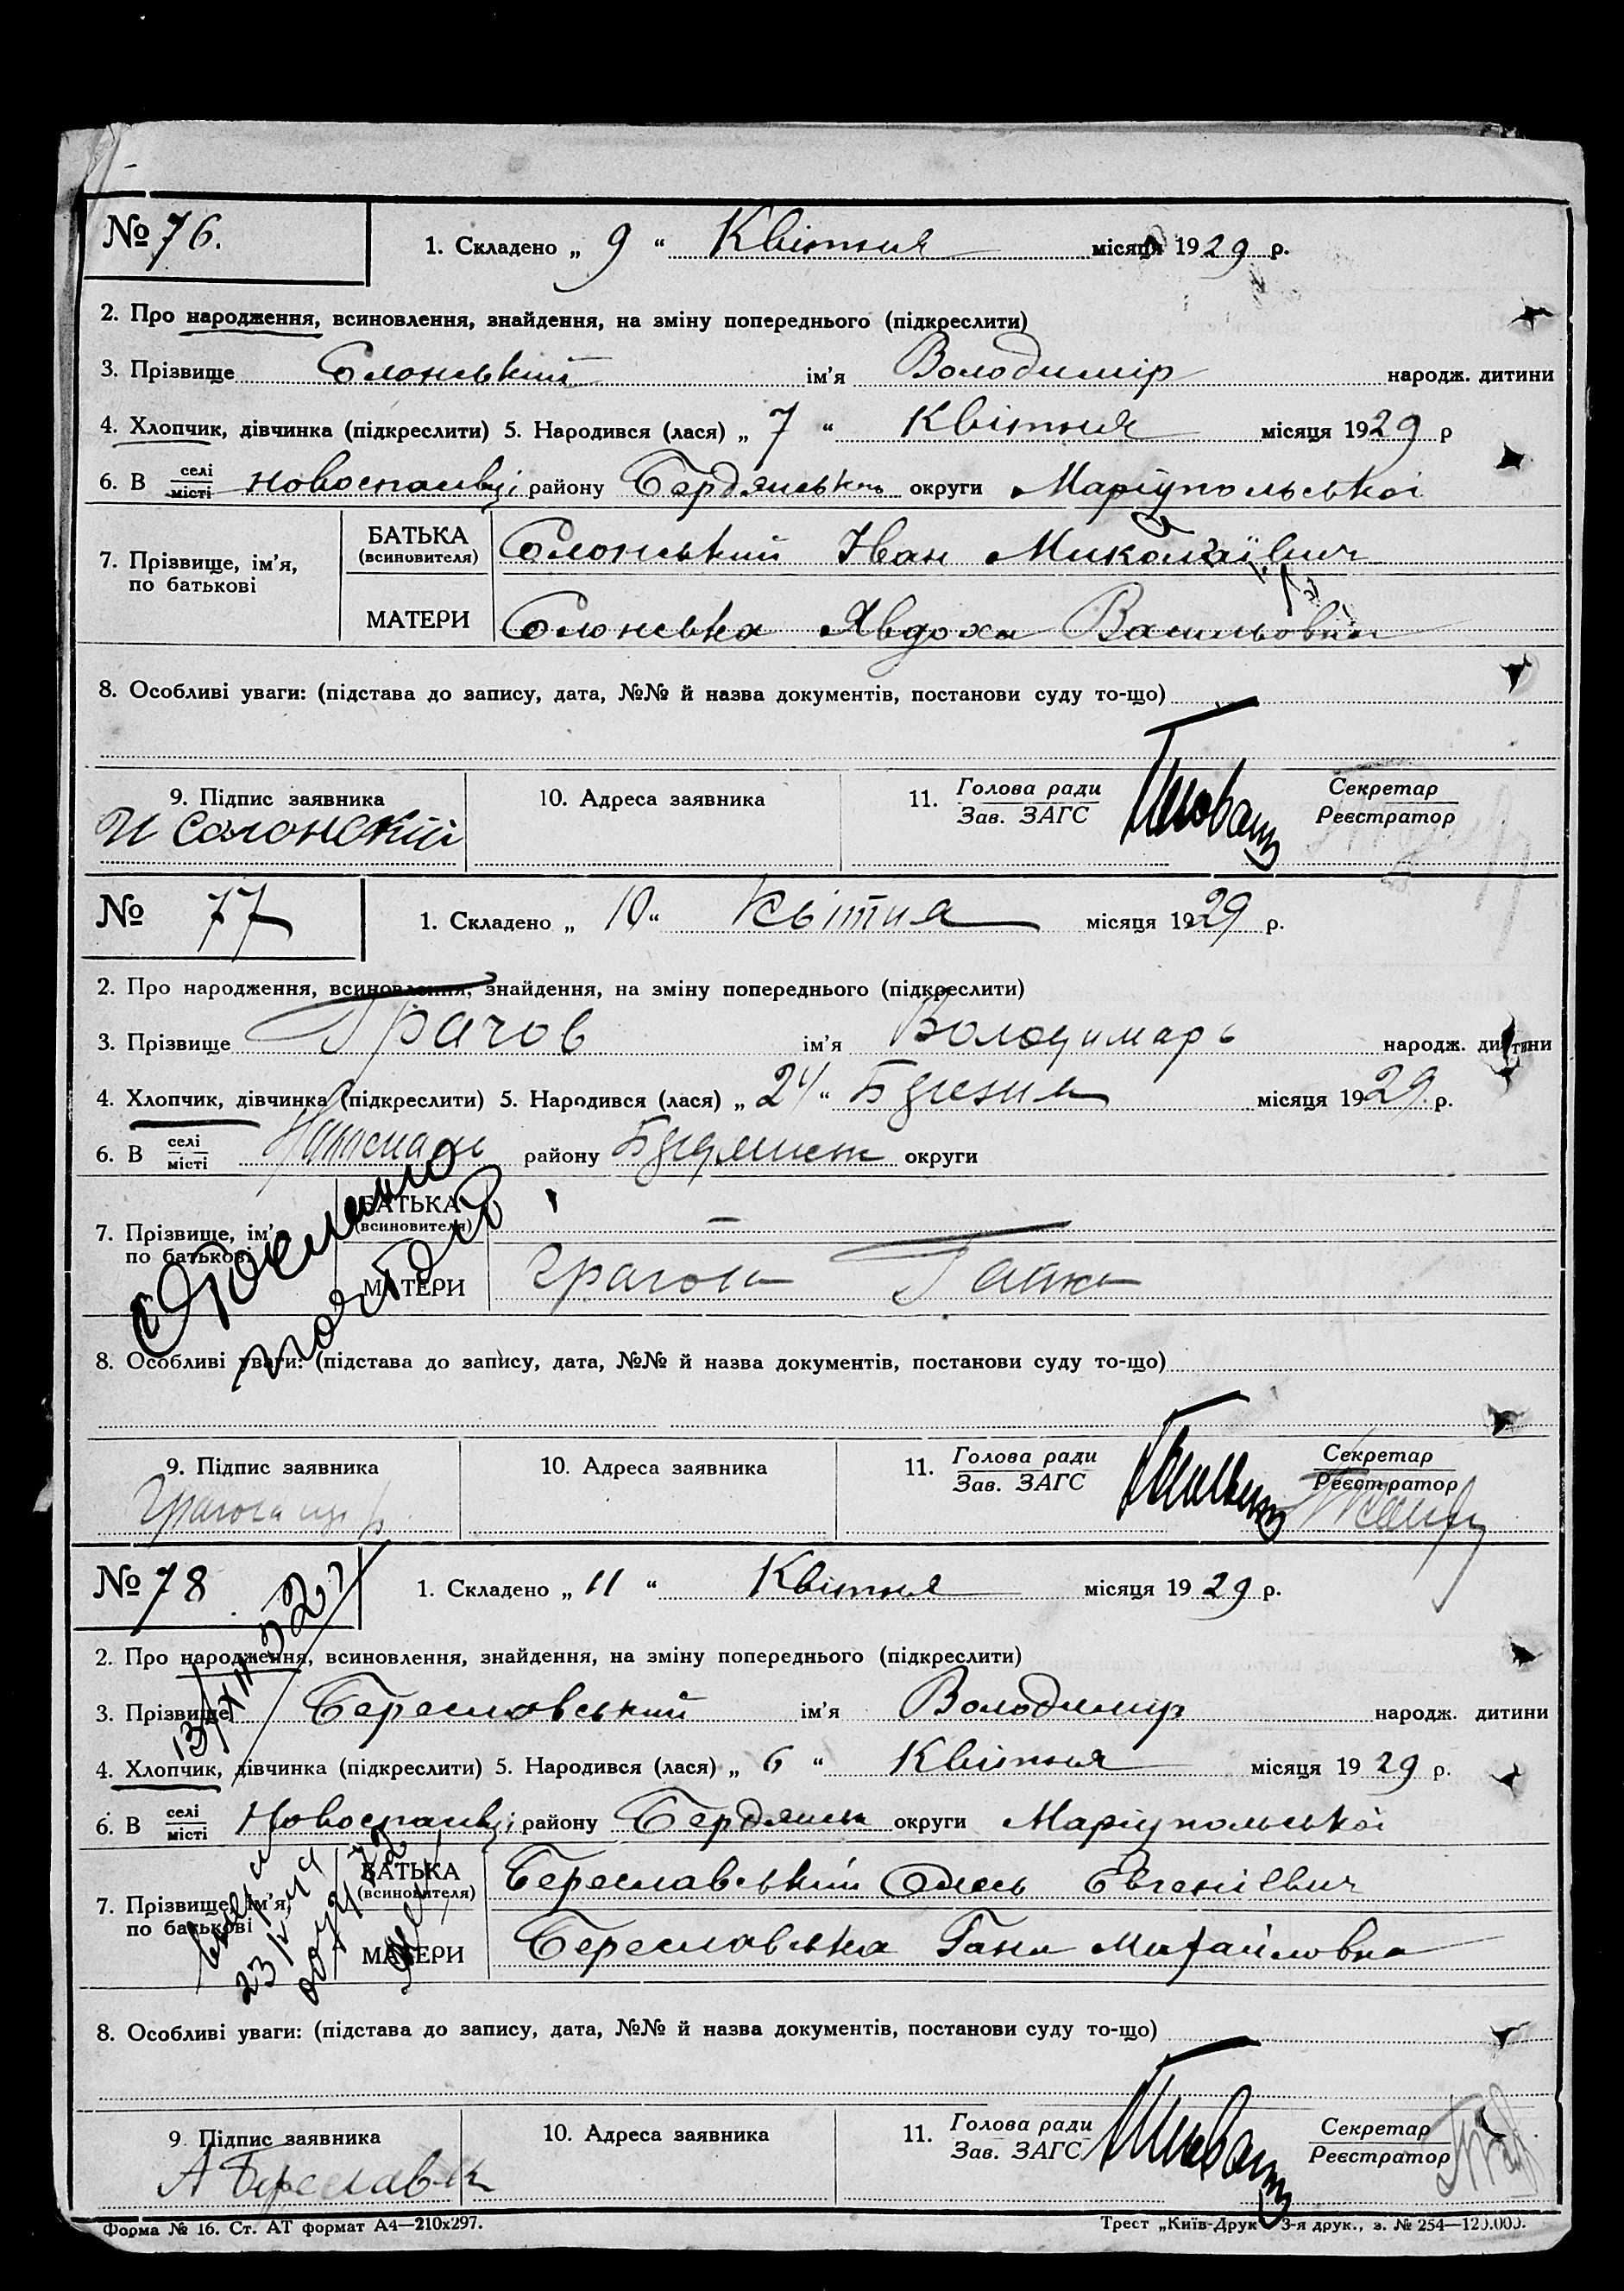 № 76. 1. Складено „ 9 “ Квітня місяця 1929 р.
2. Про народження, всиновлення, знайдення, на зміну попереднього (підкреслити)
3. Прізвище Солонський ім’я Володимір народж. дитини
4. Хлопчик, дівчинка (підкреслити) 5. Народився (лася) „ 7 “ Квітня місяця 1929 р
6. В селі місті Новоспасівці району Бердянськ округи Маріупольської
7. Прізвище, ім’я, по батькові
БАТЬКА (всиновителя) Солонський Іван Миколаївич
МАТЕРИ Солонська Явдоха Васильовна
8. Особливі уваги: (підстава до запису, дата, №№ й назва документів, постанови суду то-що)
9. Підпис заявника 10. Адреса заявника 11. Голова ради Зав. ЗАГС Секретар Реєстратор
И Солонский
№ 77 1. Складено „ 10 “ Квітня місяця 1929 р.
2. Про народження, всиновлення, знайдення, на зміну попереднього (підкреслити)
3. Прізвище Грачов ім’я Володимарь народж. дитини
4. Хлопчик, дівчинка (підкреслити) 5. Народився (лася) „ 24 “ Березня місяця 1929 р.
6. В селі місті району округи
7. Прізвище, ім’я, по батькові
БАТЬКА (всиновителя) —
МАТЕРИ Грачова
8. Особливі уваги: (підстава до запису, дата, №№ й назва документів, постанови суду то-що)
9. Підпис заявника 10. Адреса заявника 11. Голова ради Зав. ЗАГС Секретар Реєстратор
№ 78 1. Складено „ 11 “ Квітня місяця 1929 р.
2. Про народження, всиновлення, знайдення, на зміну попереднього (підкреслити)
3. Прізвище Береславський ім’я Володимир народж. дитини
4. Хлопчик, дівчинка (підкреслити) 5. Народився (лася) „ 6 “ Квітня місяця 1929 р.
6. В селі місті Новоспасівці району Бердянськ округи Маріупольської
7. Прізвище, ім’я, по батькові
БАТЬКА (всиновителя) Береславський Олесь Євгенієвич
МАТЕРИ Береславська Ганна Михайловна
8. Особливі уваги: (підстава до запису, дата, №№ й назва документів, постанови суду то-що)
9. Підпис заявника 10. Адреса заявника 11. Голова ради Зав. ЗАГС Секретар Реєстратор
Форма № 16. Ст. АТ формат А4—210х297. Трест „Київ-Друк“ 3-я друк., з. № 254—120.000.